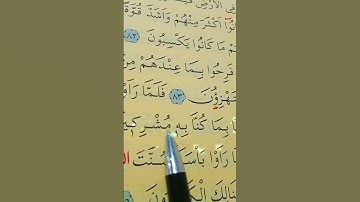 فِي الْأَرْضِ فَي
نُوٓا۟ أَكْثَرَ مِنْهُمْ وَأَشَدَّ قُوَّةً
م مَّا كَانُوا۟ يَكْسِبُونَ ﴿٨٢﴾
فَرِحُوا۟ بِمَا عِندَهُم مِّنَ
تَهْزِءُونَ ﴿٨٣﴾ فَلَمَّا رَأَوْا۟
بِمَا كُنَّا بِهِۦ مُشْرِكِينَ
رَأَوْا۟ بَأْسَنَا سُنَّتَ ال
نَالِكَ الْكَـٰفِرُونَ